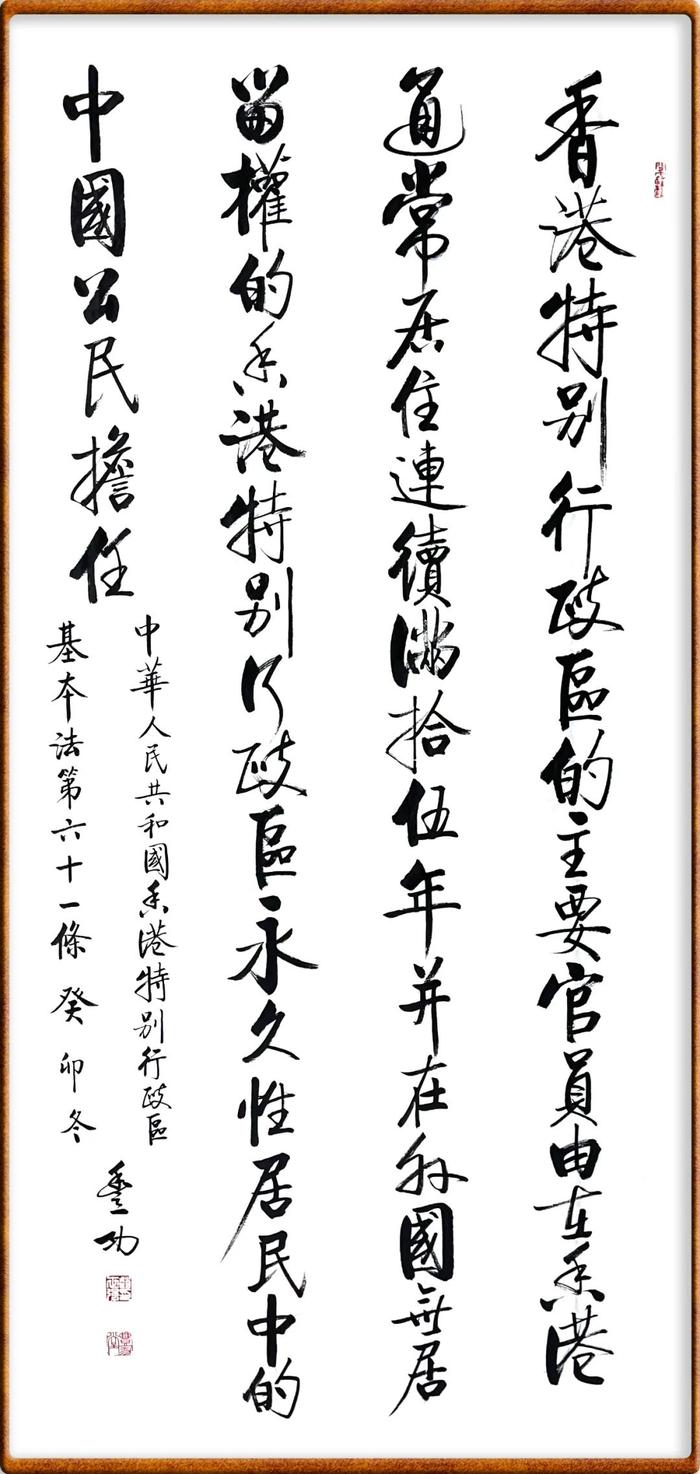 香港特别行政區的主要官員由在香港
通常居住連續滿拾伍年并在外國無居
留權的香港特别行政區永久性居民中的
中國公民擔任
中華人民共和國香港特别行政區
基本法第六十一條 癸卯冬